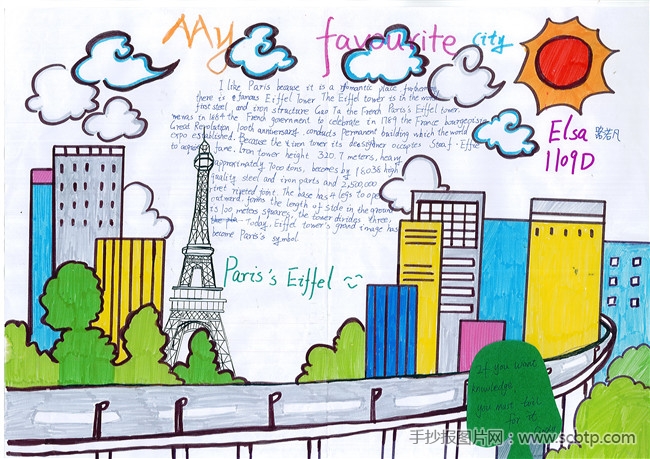 My favourite city
I like Paris because it is a romantic place,
there is a famous Eiffel Tower. The Eiffel tower is in the world
first steel, and iron structure Gao Ta the French Paris's Eiffel tower.
was in 1884 the French government to celebrate in 1789 the France bourgeoisie
Great Revolution 100th anniversary, conducts permanent building which the world
expo established. Because the iron tower its designer occupies Staaf·Effie
to acquire fame. Iron tower height 320.7 meters, heavy
approximately 7000 tons, becomes by 18038 high
quality steel and iron parts and 2,500,000
rivet riveted joint. The base has 4 legs to open
outward, forms the length of side in the ground
is 100 meters squares, the tower divides three.
today, Eiffel tower's grand image has
become Paris's symbol.
Elsa
1109D
Paris's Eiffel
If you want
knowledge,
you must toil
for it
手抄报图片网:www.scbtp.com